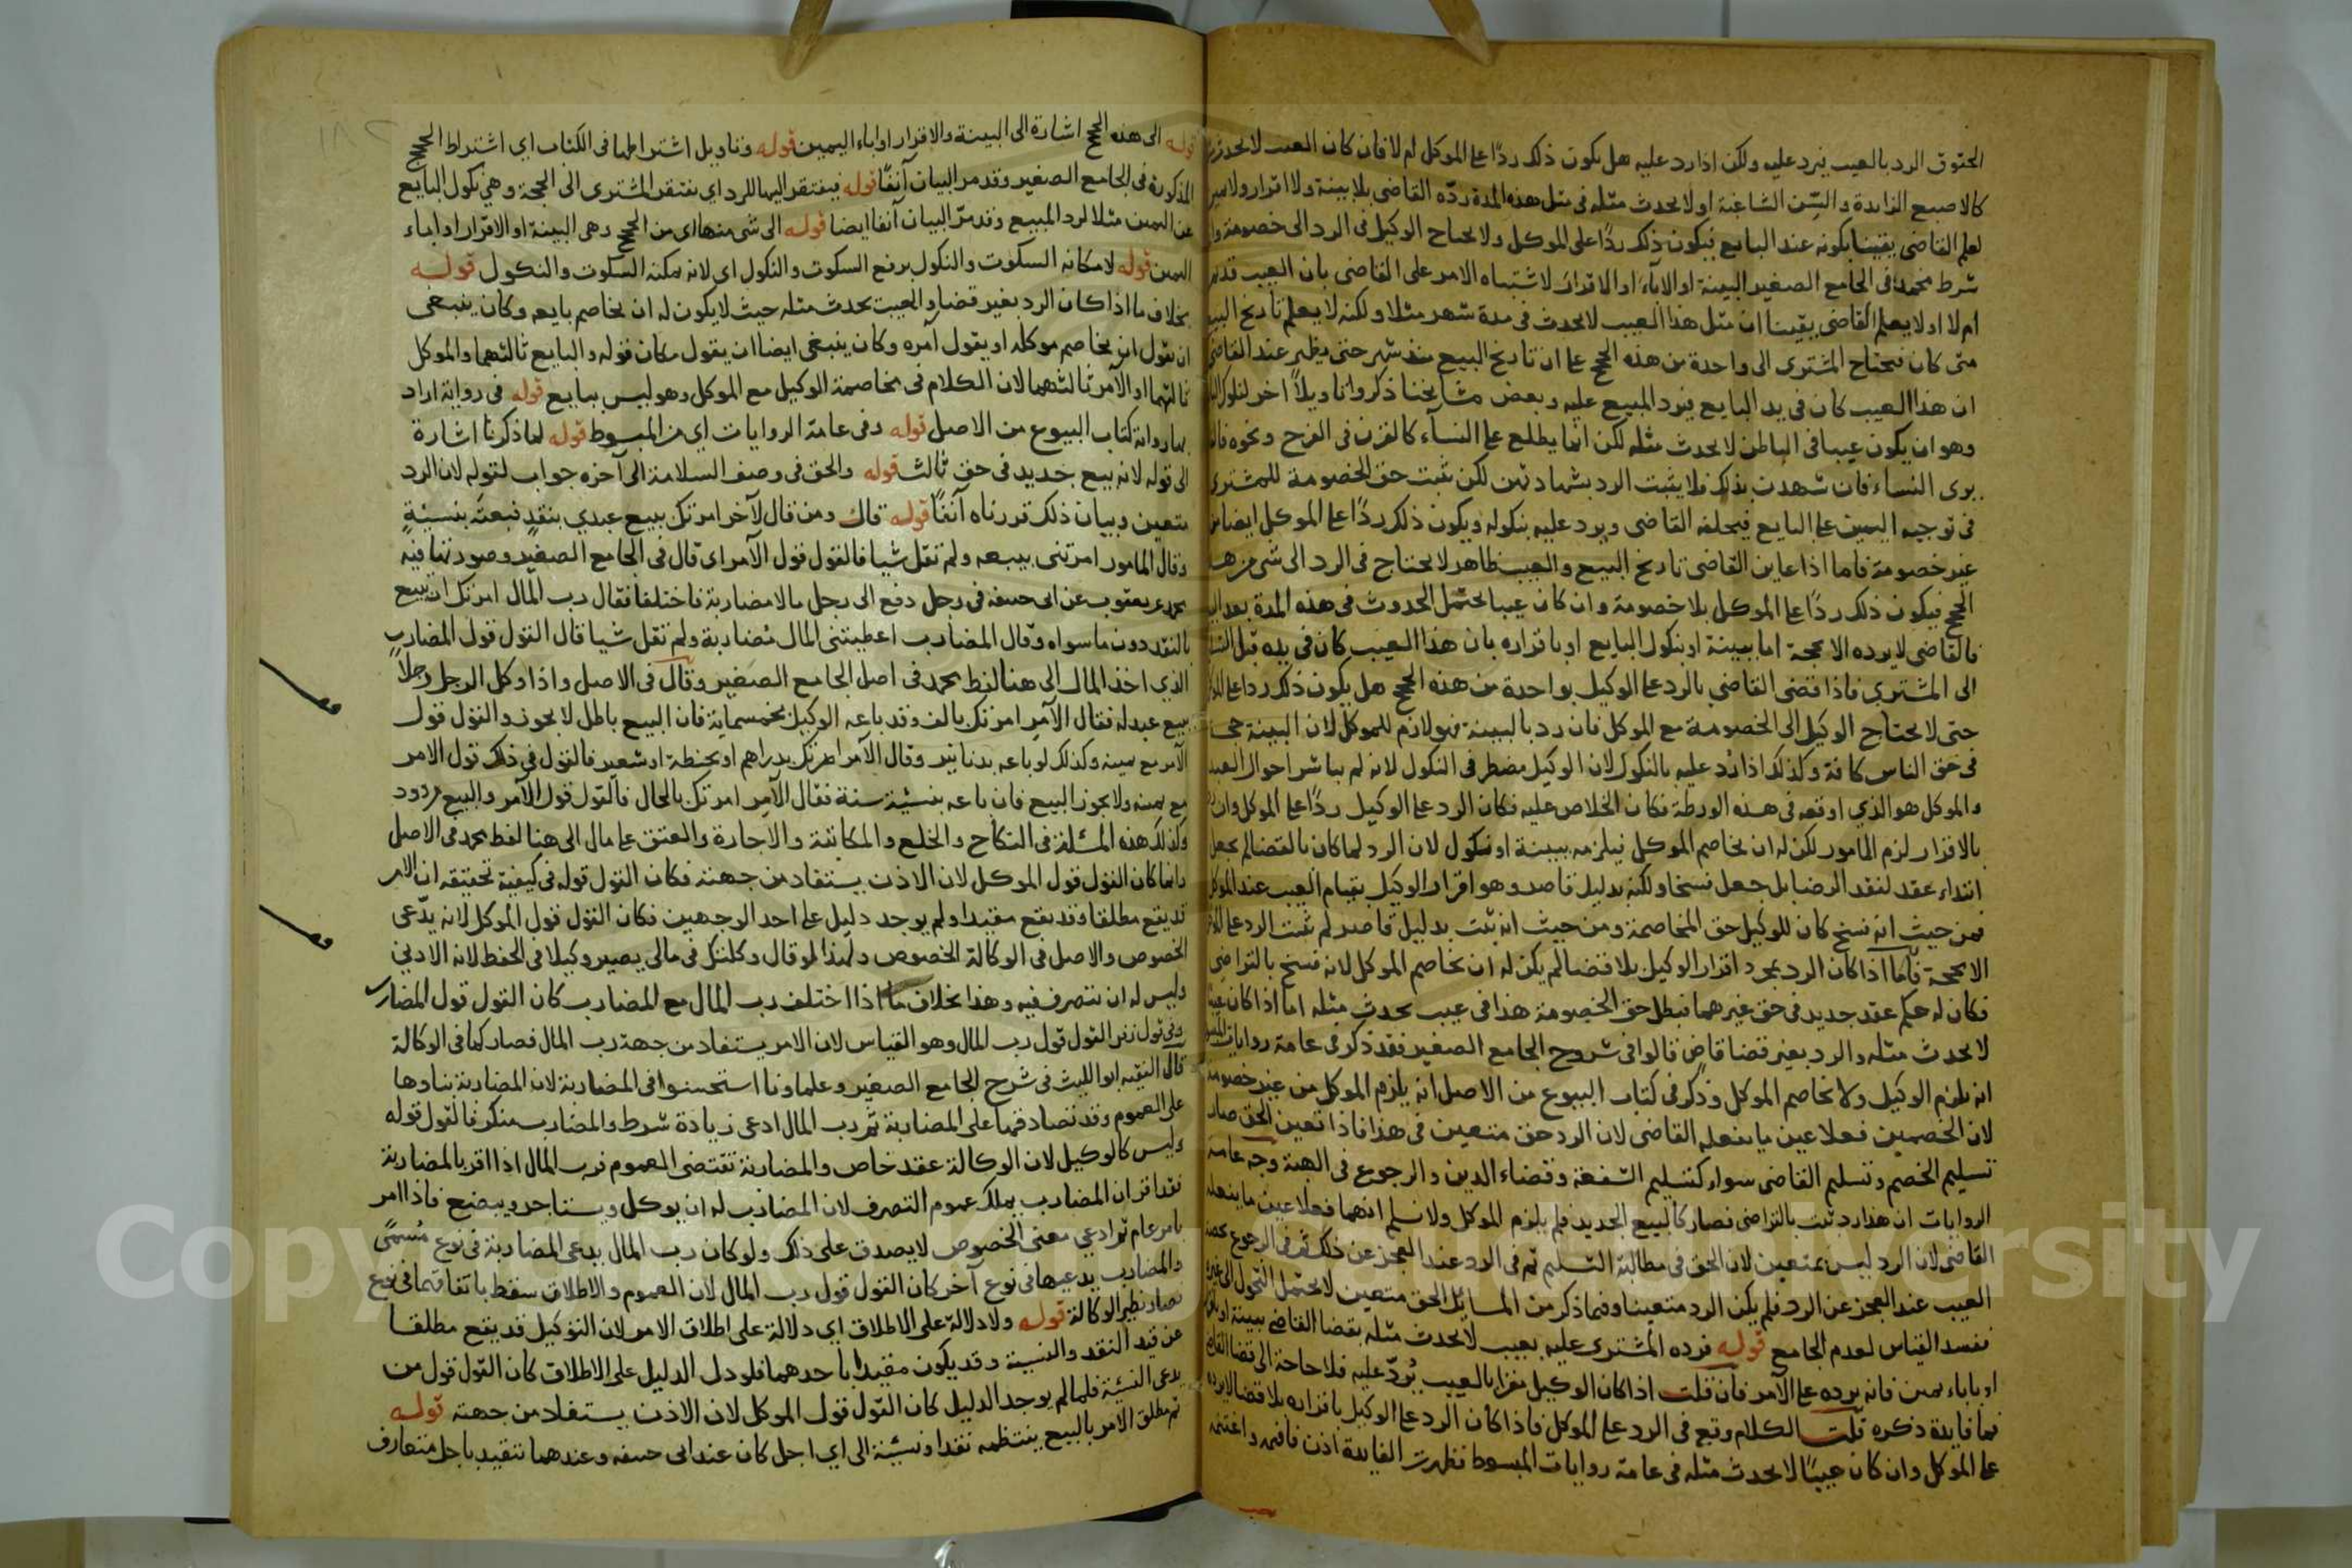 الحقوق الرد بالعيب فيرد عليه ولكن اذا رد عليه هل يكون ذلك ردًا على الموكل ام لا فان كان العيب لا يحدث
كالاصبع الزايدة والسّن الشاغية او لا يحدث مثله في مثل هذه المدة ردّه القاضي بلا بينة ولا اقرار ولا يمين
لعلم القاضي يقينا بكونه عند البايع فيكون ذلك ردًا على الموكل ولا يحتاج الوكيل في الرد الى خصومة
شرط محمد في الجامع الصغير البينة او الاباء او الاقرار لاشتباه الامر على القاضي بان العيب قديم
ام لا او لا يعلم القاضي يقينا ان مثل هذا العيب لا يحدث في مدة شهر مثلا ولكنه لا يعلم تاريخ البيع
متى كان فيحتاج المشترى الى واحدة من هذه الحجج على ان تاريخ البيع منذ شهر حتى يظهر عند القاضي
ان هذا العيب كان في يد البايع فيرد المبيع عليه وبعض مشايخنا ذكروا تاويلاً اخر
وهو ان يكون عيبا في الباطن لا يحدث مثله لكن انما يطلع على النسآء كالقرن في الفرج ونحوه
يرى النساء فان شهدت بذلك فلا يثبت الرد بشهادتهن لكن يثبت حق الخصومة للمشترى
في توجيه اليمين على البايع فيحلفه القاضي ويرد عليه بنكوله ويكون ذلك ردًا على الموكل ايضا من
غير خصومة فاما اذا عاين القاضي تاريخ البيع والعيب ظاهر لا يحتاج في الرد الى شي من هذه
الحجج فيكون ذلك ردًا على الموكل بلا خصومة وان كان عيبا يحتمل الحدوث في هذه المدة بعد البيع
فالقاضي لا يرده الا بحجة اما ببينة او بنكول البايع او باقراره بان هذا العيب كان في يده قبل
الى المشتري فاذا قضى القاضي بالرد على الوكيل بواحدة من هذه الحجج هل يكون ذلك ردا على
حتى لا يحتاج الوكيل الى الخصومة مع الموكل فان رد بالبينة فهو لازم للموكل لان البينة حجة
في حق الناس كافة وكذلك اذا رُد عليه بالنكول لان الوكيل مضطر في النكول لانه لم يباشر احوال العبد
والموكل هو الذي اوقعه في هذه الورطة فكان الخلاص عليه فكان الرد على الوكيل ردًا على الموكل وان
بالاقرار لزم المامور لكن له ان يخاصم الموكل فيلزمه ببينة او نكول لان الرد لما كان بالقضا لم يجعل
ابتداء عقد لفقد الرضا بل جعل فسخا ولكنه بدليل قاصر وهو اقرار الوكيل بقيام العيب عند الموكل
فمن حيث انه فسخ كان للوكيل حق المخاصمة ومن حيث انه ثبت بدليل قاصر لم يثبت الرد على
الا بحجة فاما اذا كان الرد بمجرد اقرار الوكيل بلا قضا لم يكن له ان يخاصم الموكل لانه فسخ بالتراضي
فكان له حكم عقد جديد في حق غيرهما فبطل حق الخصومة هذا في عيب يحدث مثله اما اذا كان
لا يحدث مثله والرد بغير قضا قاضٍ قالوا في شروح الجامع الصغير فقد ذكر في عامة روايات
انه يلزم الوكيل ولا يخاصم الموكل وذكر في كتاب البيوع من الاصل انه يلزم الموكل من غير خصومة
لان الخصمين فعلا عين ما يفعله القاضي لان الرد حق متعين في هذا فاذا تعين الحق صار
تسليم الخصم وتسليم القاضي سواء كتسليم الشفعة وقضاء الدين والرجوع في الهبة وجه عامة
الروايات ان هذا رد ثبت بالتراضي فصار كالبيع الجديد فلم يلزم الموكل ولا نسلم انهما فعلا عين ما يفعله
القاضي لان الرد ليس بمتعين لان الحق في مطالبة التسليم ثم في الرد عند العجز عن ذلك ثم في الرجوع بحصة
العيب عند العجز عن الرد فلم يكن الرد متعينا وفيما ذكر من المسايل الحق متعين لا يحتمل التحول الى غيره
ففسد القياس لعدم الجامع قوله فرده المشترى عليه بعيب لا يحدث مثله بقضا القاضي ببينة او
او باباء يمين فانه يرده على الآمر فان قلت اذا كان الوكيل مقرا بالعيب يُردّ عليه فلا حاجة الى قضا القاضي
فما فايدة ذكره قلت الكلام وقع في الرد على الموكل فاذا كان الرد على الوكيل باقراره بلا قضا لا يرد
على الموكل وان كان عيبًا لا يحدث مثله في عامة روايات المبسوط فظهرت الفايدة اذن فافهم واغتنم
قوله الى هذه الحجج اشارة الى البينة والاقرار واباء اليمين قوله وتاويل اشتراطها في الكتاب اي اشتراط الحجج
المذكورة في الجامع الصغير وقد مر البيان آنفًا قوله فيفتقر اليها للرد اي يفتقر المشترى الى الحجة وهي نكول البايع
عن اليمين مثلا لرد المبيع وقد مرّ البيان آنفا ايضا قوله الى شي منها اي من الحجج وهي البينة او الاقرار او اباء
اليمين قوله لامكانه السكوت والنكول برفع السكوت والنكول اى لانه يمكنه السكوت والنكول قوله
بخلاف ما اذا كان الرد بغير قضا والعيب يحدث مثله حيث لا يكون له ان يخاصم بايعه وكان ينبغي
ان يقول ان يخاصم موكله او يقول آمره وكان ينبغي ايضا ان يقول مكان قوله والبايع ثالثهما والموكل
ثالثهما او الآمر ثالثهما لان الكلام في مخاصمة الوكيل مع الموكل وهو ليس ببايع قوله في رواية اراد
بها رواية كتاب البيوع من الاصل قوله وفي عامة الروايات اي من المبسوط قوله لما ذكرنا اشارة
الى قوله لانه بيع جديد في حق ثالث قوله والحق في وصف السلامة الى آخره جواب لقوله لان الرد
متعين وبيان ذلك قررناه آنفًا قوله قال ومن قال لآخر امرتك ببيع عبدي بنقدٍ فبعتَه بنسيئةٍ
وقال المامور امرتني ببيعه ولم تقل شيا فالقول قول الآمر اى قال في الجامع الصغير وصورتها فيه
محمد عن يعقوب عن ابى حنيفه في رجل دفع الى رجل مالا مضاربة فاختلفا فقال رب المال امرتك ان تبيع
بالنقد دون ما سواه وقال المضارب اعطيتني المال مُضاربة ولم تقل شيا قال القول قول المضارب
الذي اخذ المال الى هنا لفظ محمد في اصل الجامع الصغير وقال في الاصل واذا وكل الرجل رجلاً
ببيع عبد له فقال الآمر امرتك بالف وقد باعه الوكيل بخمسماية فان البيع باطل لا يجوز والقول قول
الآمر مع يمينه وكذلك لو باعه بدنانير وقال الآمر امرتك بدراهم او بحنطة او شعير فالقول في ذلك قول الامر
مع يمينه ولا يجوز البيع فان باعه بنسيئة سنة فقال الآمر امرتك بالحال فالقول قول الآمر والبيع مردود
وكذلك هذه المسئلة في النكاح والخلع والمكاتبة والاجارة والعتق على مال الى هنا لفظ محمد في الاصل
وانما كان القول قول الموكل لان الاذن يستفاد من جهته فكان القول قوله في كيفية تحقيقه ان الامر
قد يقع مطلقا وقد يقع مقيدا ولم يوجد دليل على احد الوجهين فكان القول قول الموكل لانه يدّعي
الخصوص والاصل في الوكالة الخصوص ولهذا لو قال وكلتك في مالي يصير وكيلا في الحفظ لانه الادني
وليس له ان يتصرف فيه وهذا بخلاف ما اذا اختلف رب المال مع المضارب كان القول قول المضارب
وفي قول زفر القول قول رب المال وهو القياس لان الامر يستفاد من جهة رب المال فصار كما في الوكالة
قال الفقيه ابو الليث في شرح الجامع الصغير وعلماونا استحسنوا في المضاربة لان المضاربة بناوها
على العموم وقد تصادقهما على المضاربة ثم رب المال ادعى زيادة شرط والمضارب منكر فالقول قوله
وليس كالوكيل لان الوكالة عقد خاص والمضاربة تقتضى العموم فرب المال اذا اقر بالمضاربة
فقد اقر ان المضارب يملك عموم التصرف لان المضارب له ان يوكل ويستاجر ويبضع فاذا امر
بامر عام ثم ادعي معنى الخصوص لا يصدق على ذلك ولو كان رب المال يدعى المضاربة في نوع مُسمًى
والمضارب يدعيها في نوع آخر كان القول قول رب المال لان العموم والاطلاق سقط باتفاقهما في نوع
فصار نظير الوكالة قوله ولا دلالة على الاطلاق اي دلالة على اطلاق الامر لان التوكيل قد يقع مطلقا
عن قيد النقد والنسيئة وقد يكون مقيدا باحدهما فلو دل الدليل على الاطلاق كان القول قول من
يدعى النسيئة فلما لم يوجد الدليل كان القول قول الموكل لان الاذن يستفاد من جهته قوله
ثم مطلق الامر بالبيع ينتظمه نقدا ونسيئة الى اي اجل كان عند ابى حنيفه وعندهما يتقيد باجل متعارف
Copy versity